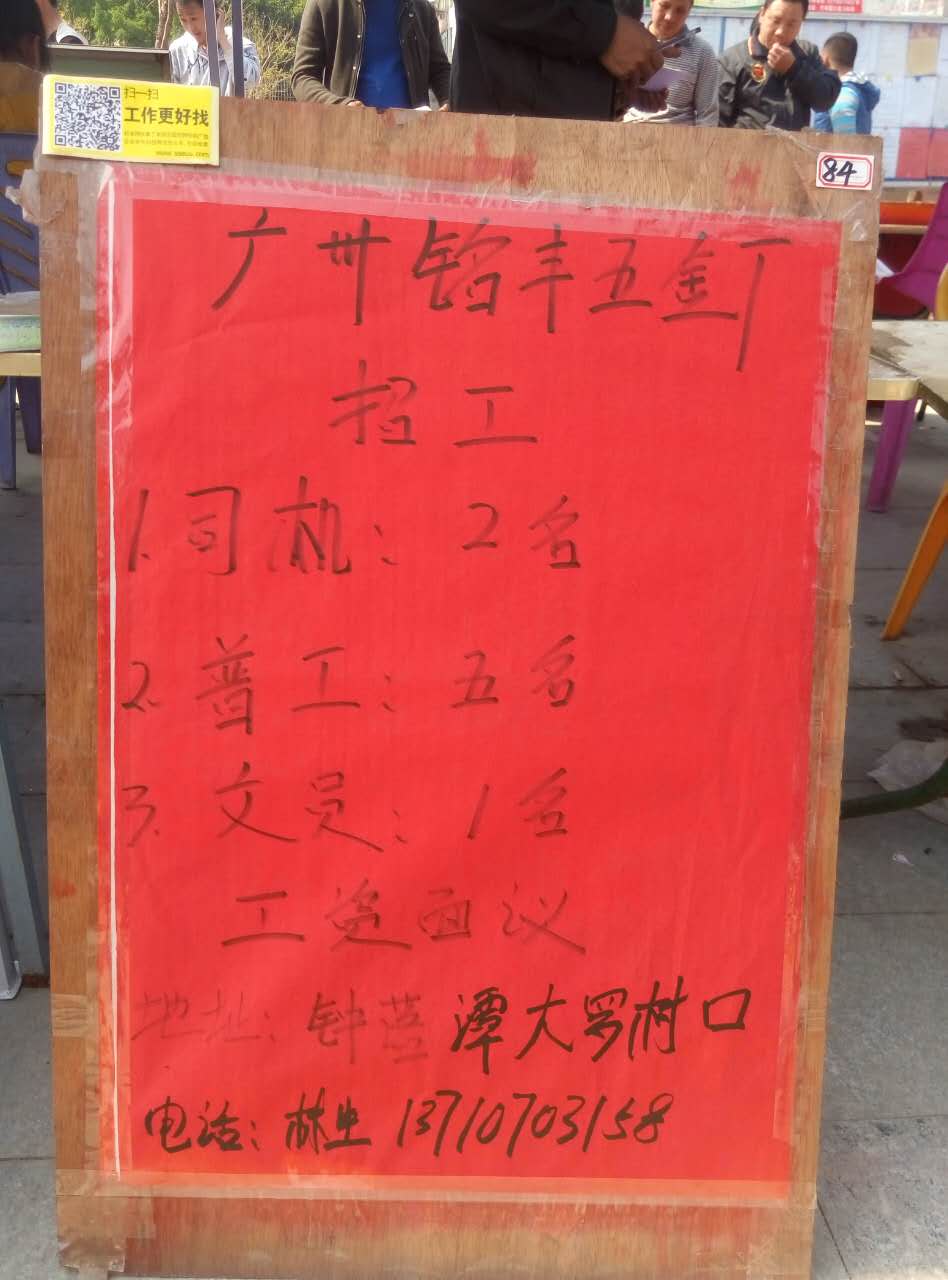 扫一扫
工作更好找
84
广州铭丰五金厂
招工
1.司机：2名
2.普工：五名
3.文员：1名
工资面议
地址：钟落潭大罗村口
电话：林生 13710703158